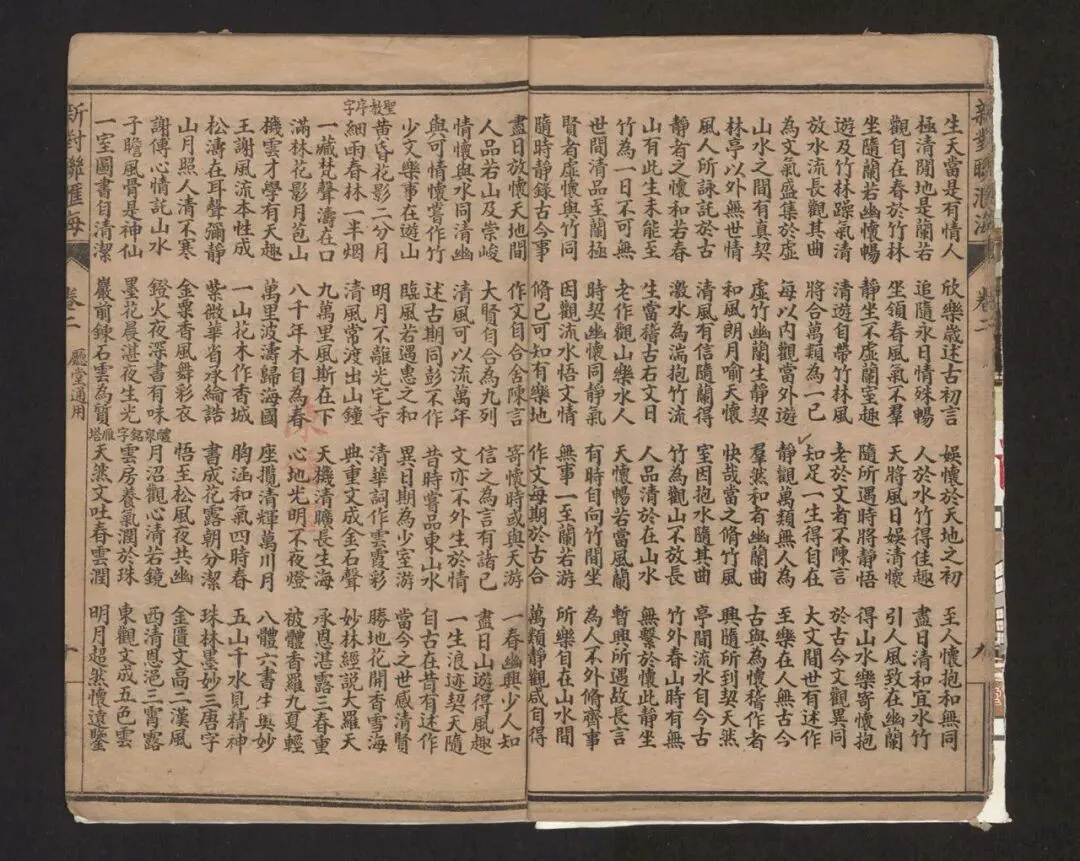 新對聯滙海
卷二
九
生天當是有情人
極清閒地是蘭若
觀自在春於竹林
坐隨蘭若幽懷暢
遊及竹林躁氣清
放水流長觀其曲
為文氣盛集於虛
山水之間有真契
林亭以外無世情
風人所詠託於古
靜者之懷和若春
山有此生未能至
竹為一日不可無
世間清品至蘭極
賢者虛懷與竹同
隨時靜錄古今事
欣樂歲述古初言
追隨永日情殊暢
坐領春風氣不羣
靜坐不虛蘭室趣
清遊自帶竹林風
將合萬類為一己
每以內觀當外遊
虛竹幽蘭生靜契
和風朗月喻天懷
清風有信隨蘭得
激水為湍抱竹流
生當稽古右文日
老作觀山樂水人
時契幽懷同靜氣
因觀流水悟文情
脩己可知有樂地
娛懷於天地之初
人於水竹得佳趣
天將風日娛清懷
隨所遇時將靜悟
老於文者不陳言
知足一生得自在
靜觀萬類無人為
羣然和者幽蘭曲
快哉當之脩竹風
室因抱水隨其曲
竹為觀山不放長
人品清於在山水
天懷暢若當風蘭
有時自向竹間坐
無事一至蘭若游
作文每期於古合
至人懷抱和無同
盡日清和宜水竹
引人風致在幽蘭
得山水樂寄懷抱
於古今文觀異同
大文間世有述作
至樂在人無古今
古與為懷稽作者
興隨所到契天然
亭間流水自今古
竹外春山時有無
無繫於懷此靜坐
暫興所遇故長言
為人不外脩齊事
所樂自在山水間
萬類靜觀咸自得
盡日放懷天地間
人品若山及崇峻
情懷與水同清幽
與可情懷嘗作竹
少文樂事在遊山
聖教序字
黃昏花影二分月
細雨春林一半烟
一藏梵聲濤在口
滿林花影月芭山
機雲才學有天趣
王謝風流本性成
松濤在耳聲彌靜
山月照人清不寒
謝傅心情託山水
子瞻風骨是神仙
一室圖書自清潔
作文自合舍陳言
大賢自合為九列
清風可以流萬年
述古期同彭不作
臨風若遇惠之和
明月不離光宅寺
清風常渡出山鐘
九萬里風斯在下
八千年木自為春
萬里波濤歸海國
一山花木作香城
紫微華省承綸誥
金粟香風舞彩衣
鐙火夜深書有味
墨花晨湛夜生光
巖前鍊石雲為質
寄懷時或與天游
信之為言有諸己
文亦不外生於情
昔時嘗品東山水
異日期為少室游
清華詞作雲霞彩
典重文成金石聲
天機清曠長生海
心地光明不夜燈
座攬清輝萬川月
胸涵和氣四時春
書成花露朝分潔
悟至松風夜共幽
醴泉銘字
月沼觀心清若鏡
雲房養氣潤於珠
雁塔
天然文吐春雲潤
一春幽興少人知
盡日山遊得風趣
一生浪迹契天隨
自古在昔有述作
當今之世感清賢
勝地花開香雪海
妙林經說大羅天
承恩湛露三春重
被體香羅九夏輕
八體六書生奧妙
五山千水見精神
珠林墨妙三唐字
金匱文高二漢風
西清恩浥三霄露
東觀文成五色雲
明月超然懷遠鑒
新對聯滙海
卷二
廳堂通用
十